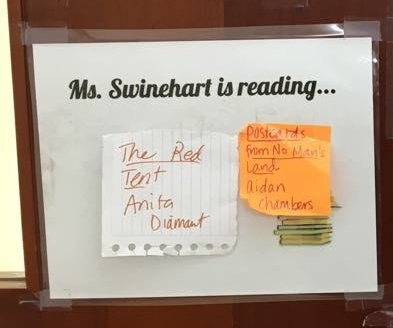 Ms. Swinehart is reading...
The Red
Tent
Anita
Diamant
Postcards
from No Man's
Land
aidan
chambers